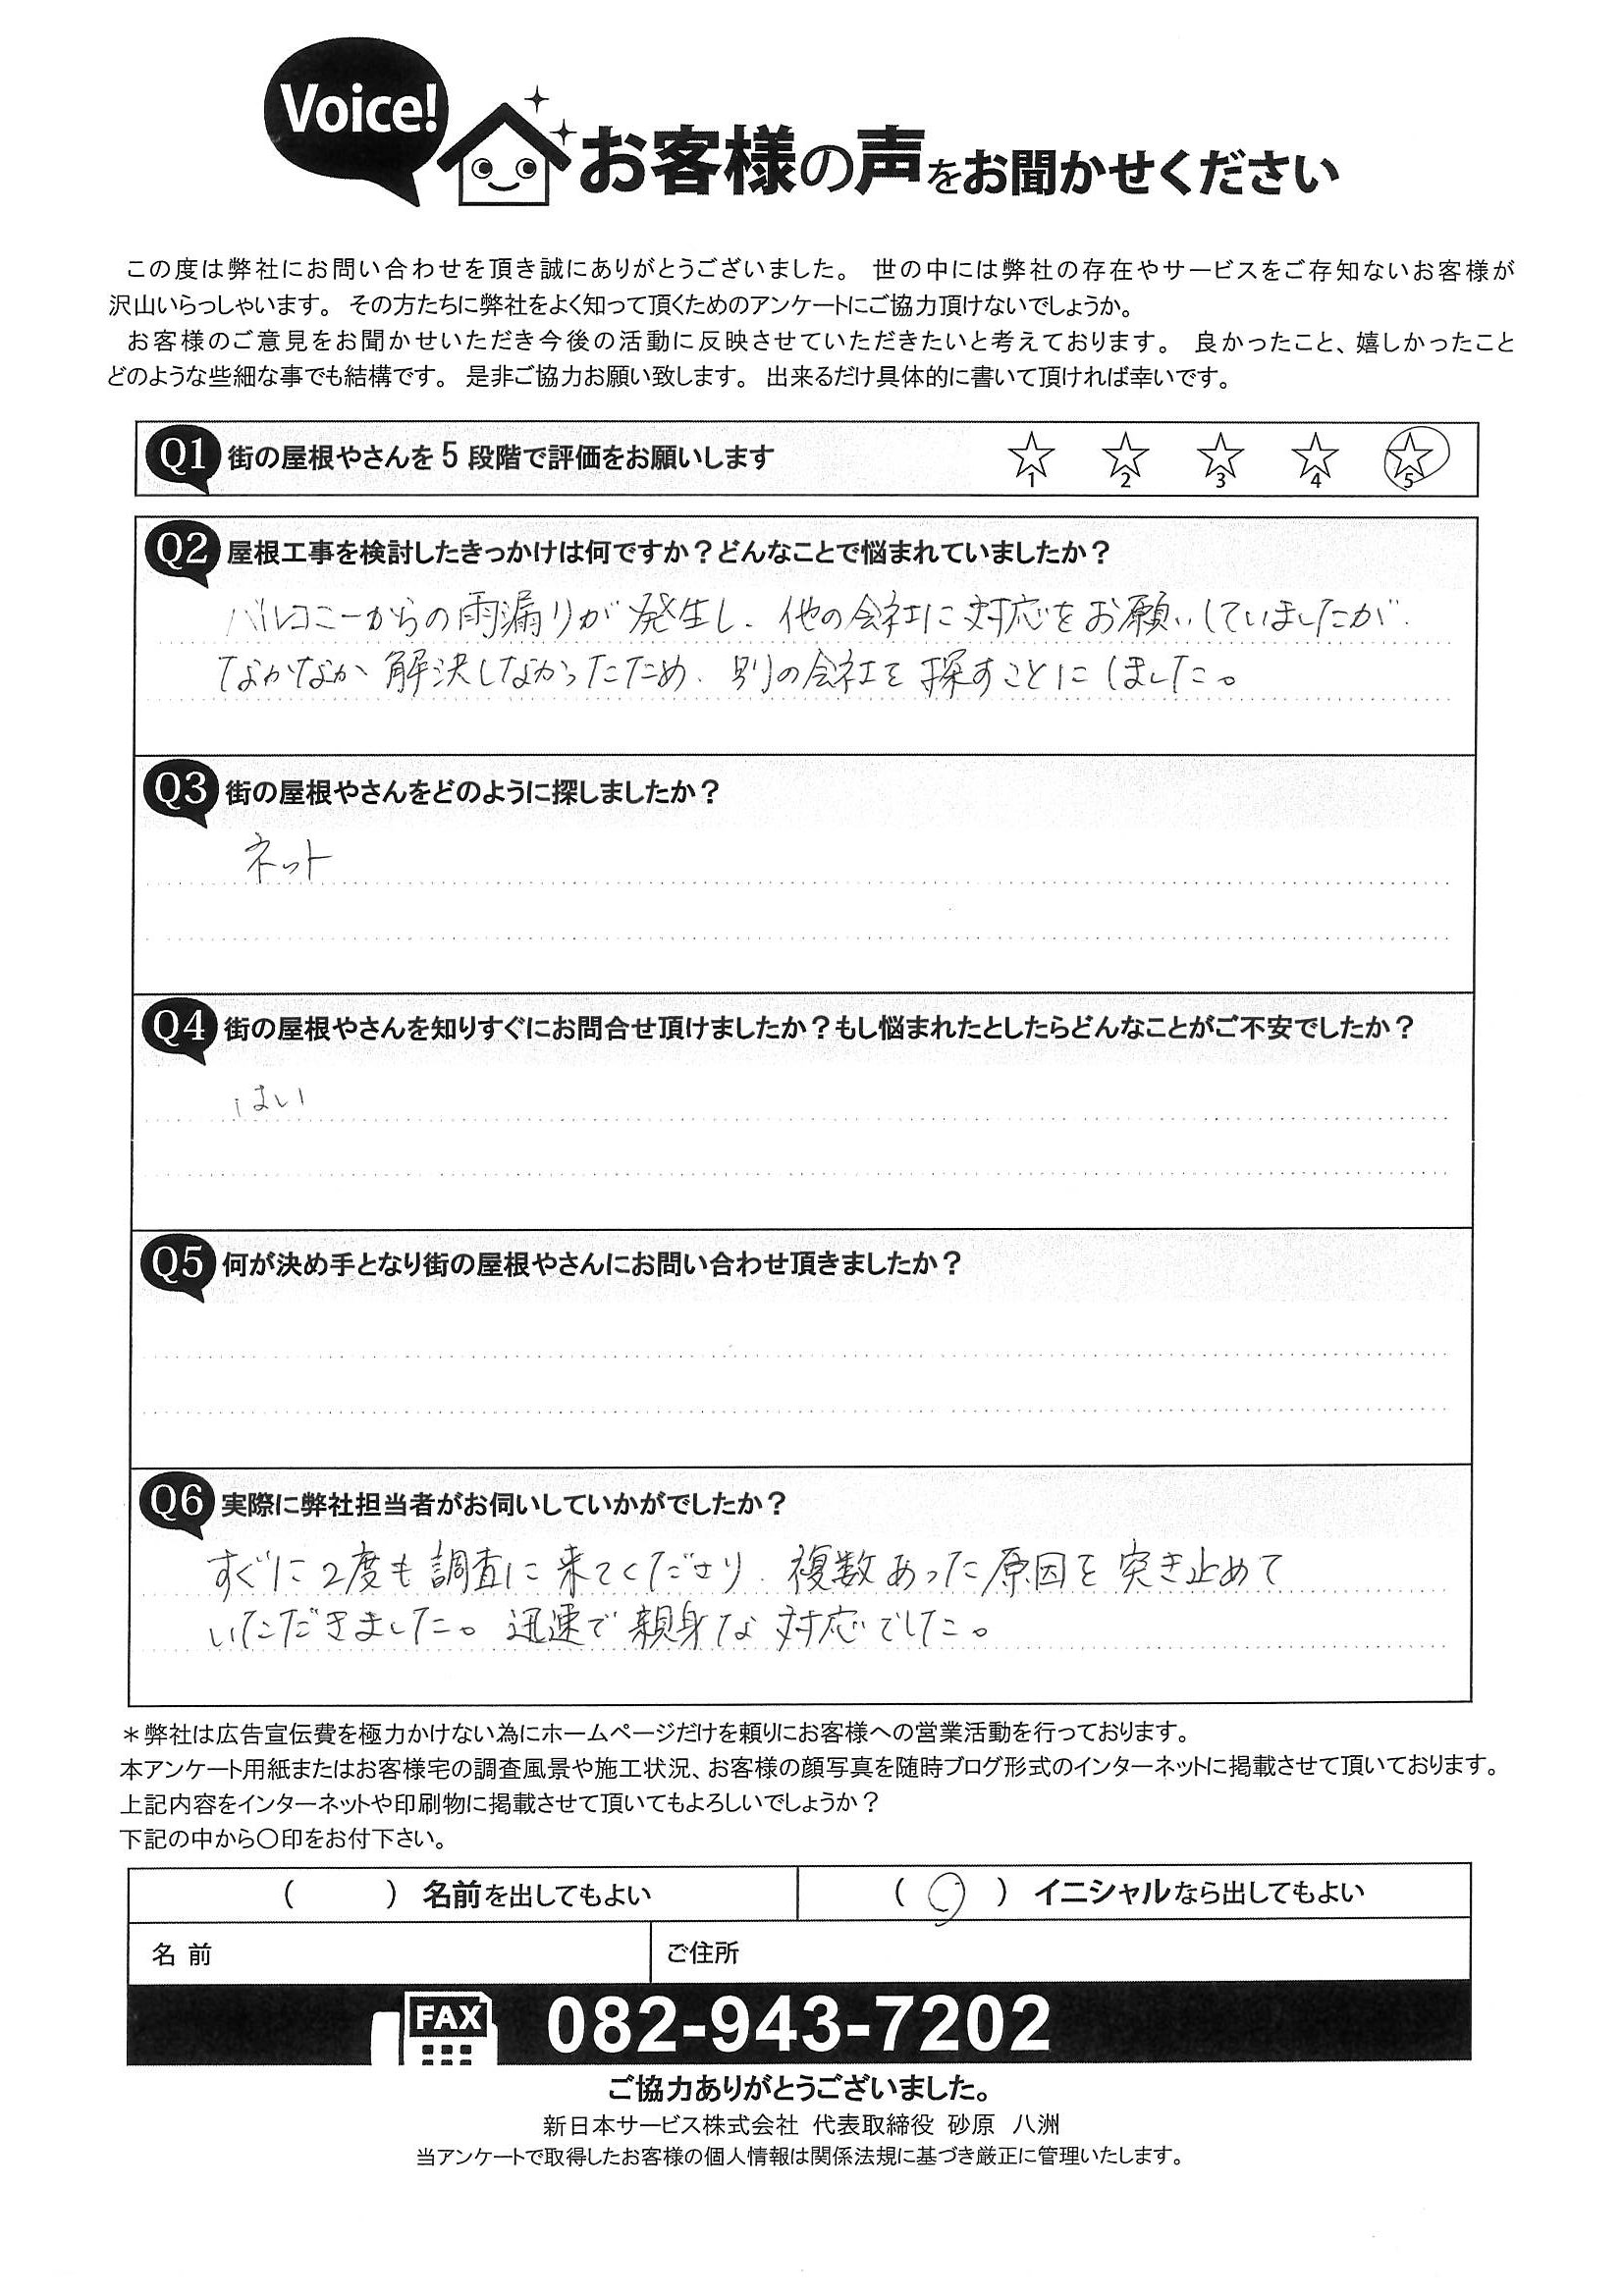 Voice!
お客様の声をお聞かせください
この度は弊社にお問い合わせを頂き誠にありがとうございました。 世の中には弊社の存在やサービスをご存知ないお客様が
沢山いらっしゃいます。 その方たちに弊社をよく知って頂くためのアンケートにご協力頂けないでしょうか。
お客様のご意見をお聞かせいただき今後の活動に反映させていただきたいと考えております。 良かったこと、嬉しかったこと
どのような些細な事でも結構です。 是非ご協力お願い致します。 出来るだけ具体的に書いて頂ければ幸いです。
Q1 街の屋根やさんを5段階で評価をお願いします 1 2 3 4 5
Q2 屋根工事を検討したきっかけは何ですか？どんなことで悩まれていましたか？
バルコニーからの雨漏りが発生し、他の会社に対応をお願いしていましたが、
なかなか解決しなかったため、別の会社を探すことにしました。
Q3 街の屋根やさんをどのように探しましたか？
ネット
Q4 街の屋根やさんを知りすぐにお問合せ頂けましたか？もし悩まれたとしたらどんなことがご不安でしたか？
はい
Q5 何が決め手となり街の屋根やさんにお問い合わせ頂きましたか？
Q6 実際に弊社担当者がお伺いしていかがでしたか？
すぐに2度も調査に来てくださり、複数あった原因を突き止めて
いただきました。迅速で親身な対応でした。
＊弊社は広告宣伝費を極力かけない為にホームページだけを頼りにお客様への営業活動を行っております。
本アンケート用紙またはお客様宅の調査風景や施工状況、お客様の顔写真を随時ブログ形式のインターネットに掲載させて頂いております。
上記内容をインターネットや印刷物に掲載させて頂いてもよろしいでしょうか？
下記の中から〇印をお付下さい。
（　　）名前を出してもよい （○）イニシャルなら出してもよい
名 前 ご住所
FAX 082-943-7202
ご協力ありがとうございました。
新日本サービス株式会社 代表取締役 砂原 八洲
当アンケートで取得したお客様の個人情報は関係法規に基づき厳正に管理いたします。